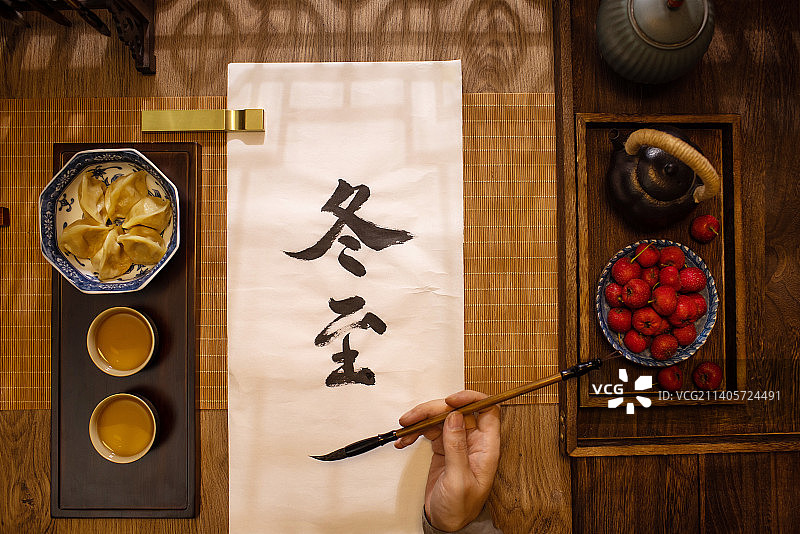 冬
至
VCG VCG211405724491